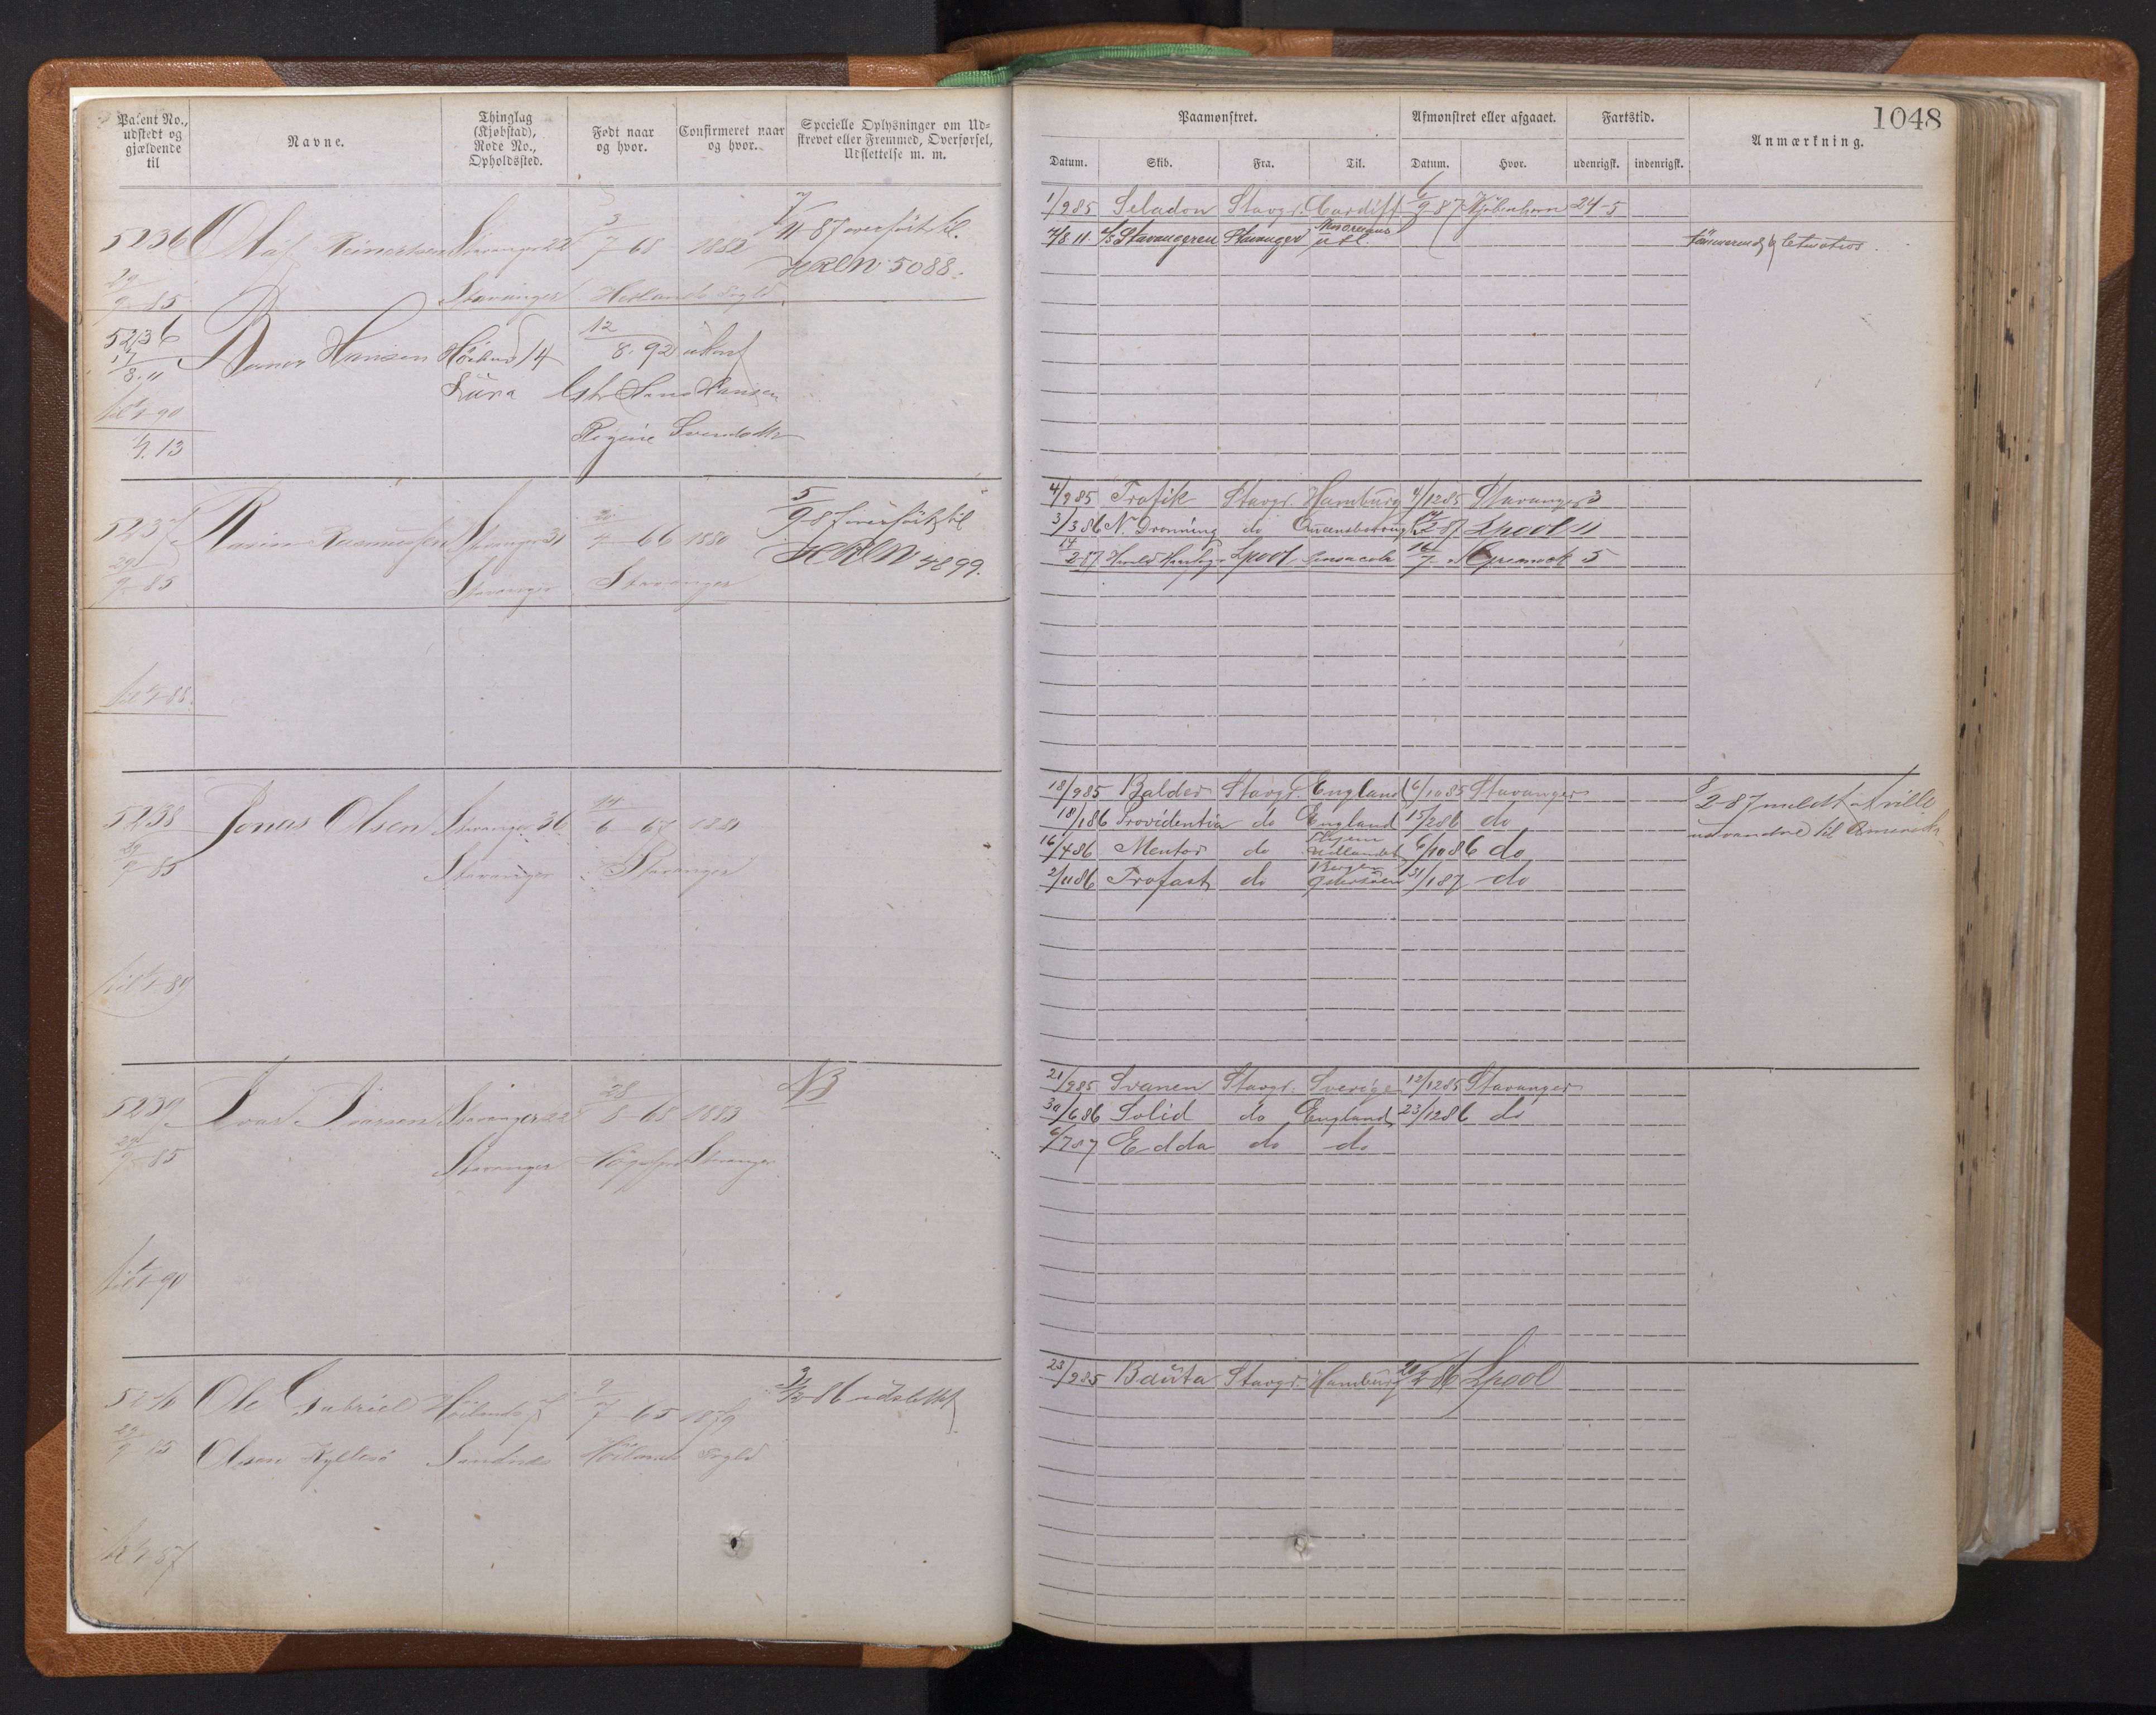 Patent No., udstedt og gjældende til
Navne.
Thinglag (Kjøbstad), Rode No., Opholdssted.
Født naar og hvor.
Confirmeret naar og hvor.
Specielle Oplysninger om Udskrevet eller Fremmed, Overførsel, Udslettelse m. m.
5236 Olaf Reinertsen Stavanger 22 3/7 68 1882 7/11 87 overført til
HRLN 5088.
29/9 85 Stavanger Hetlands Prgld
5236 Hansen Høiland 14 12/8 92 ukonf
17/8.11 Lura Hans Hansen
til 1/1 90 Regine
1/1.13
5237 Rasmussen Stavanger 31 66 1880 5/9 87 overført til
HRLN 4899.
29/9 85 Stavanger Stavanger
til 1/1 88
5238 Jonas Olsen Stavanger 36 14/6 67
29/9 85 Stavanger Stavanger
til 1/1 89
5239 Ivar Ivarsen Stavanger 22 28/5 65 1883 NB
29/9 85 Stavanger Stavanger
til 1/1 90
5240 Ole Gabriel Høilands 9/7 65 1879 86 udslettet
29/9 85 Olsen Sandnes Høilands Prgld
til 1/1 87
1048
Paamønstret.
Afmønstret eller afgaaet.
Fartstid.
Anmærkning.
Datum. Skib. Fra. Til. Datum. Hvor. udenrigsk. indenrigsk.
1/9 85 Seladon Stavgr. Cardiff 6/9 87 Kjøbenhavn 24-5
7/8 11. Stavangeren Stavanger utl.
4/9 85 Trafik Stavgr. Hamburg 4/12 85 Stavanger 3
3/3 86 N. Dronning do Queensborough 14/2 87 Lpool 11
14/2 87 Harald Haarfager Lpool Pensacola 16/7 " Greenock 5
18/9 85 Balder Stavgr. England 6/10 85 Stavanger 8/2-87 meldt at ville
18/1 86 Providentia do England 15/2 86 do udvandre til Amerika
16/4 86 Mentor do Udlandet 6/10 86 do
2/11 86 Trofast do Bergen 31/1 87 do
21/9 85 Svanen Stavgr. Sverige 12/12 85 Stavanger
30/6 86 Solid do England 23/12 86 do
6/7 87 Edda do do
23/9 85 Bauta Stavgr. Hamburg 20/2 86 Lpool